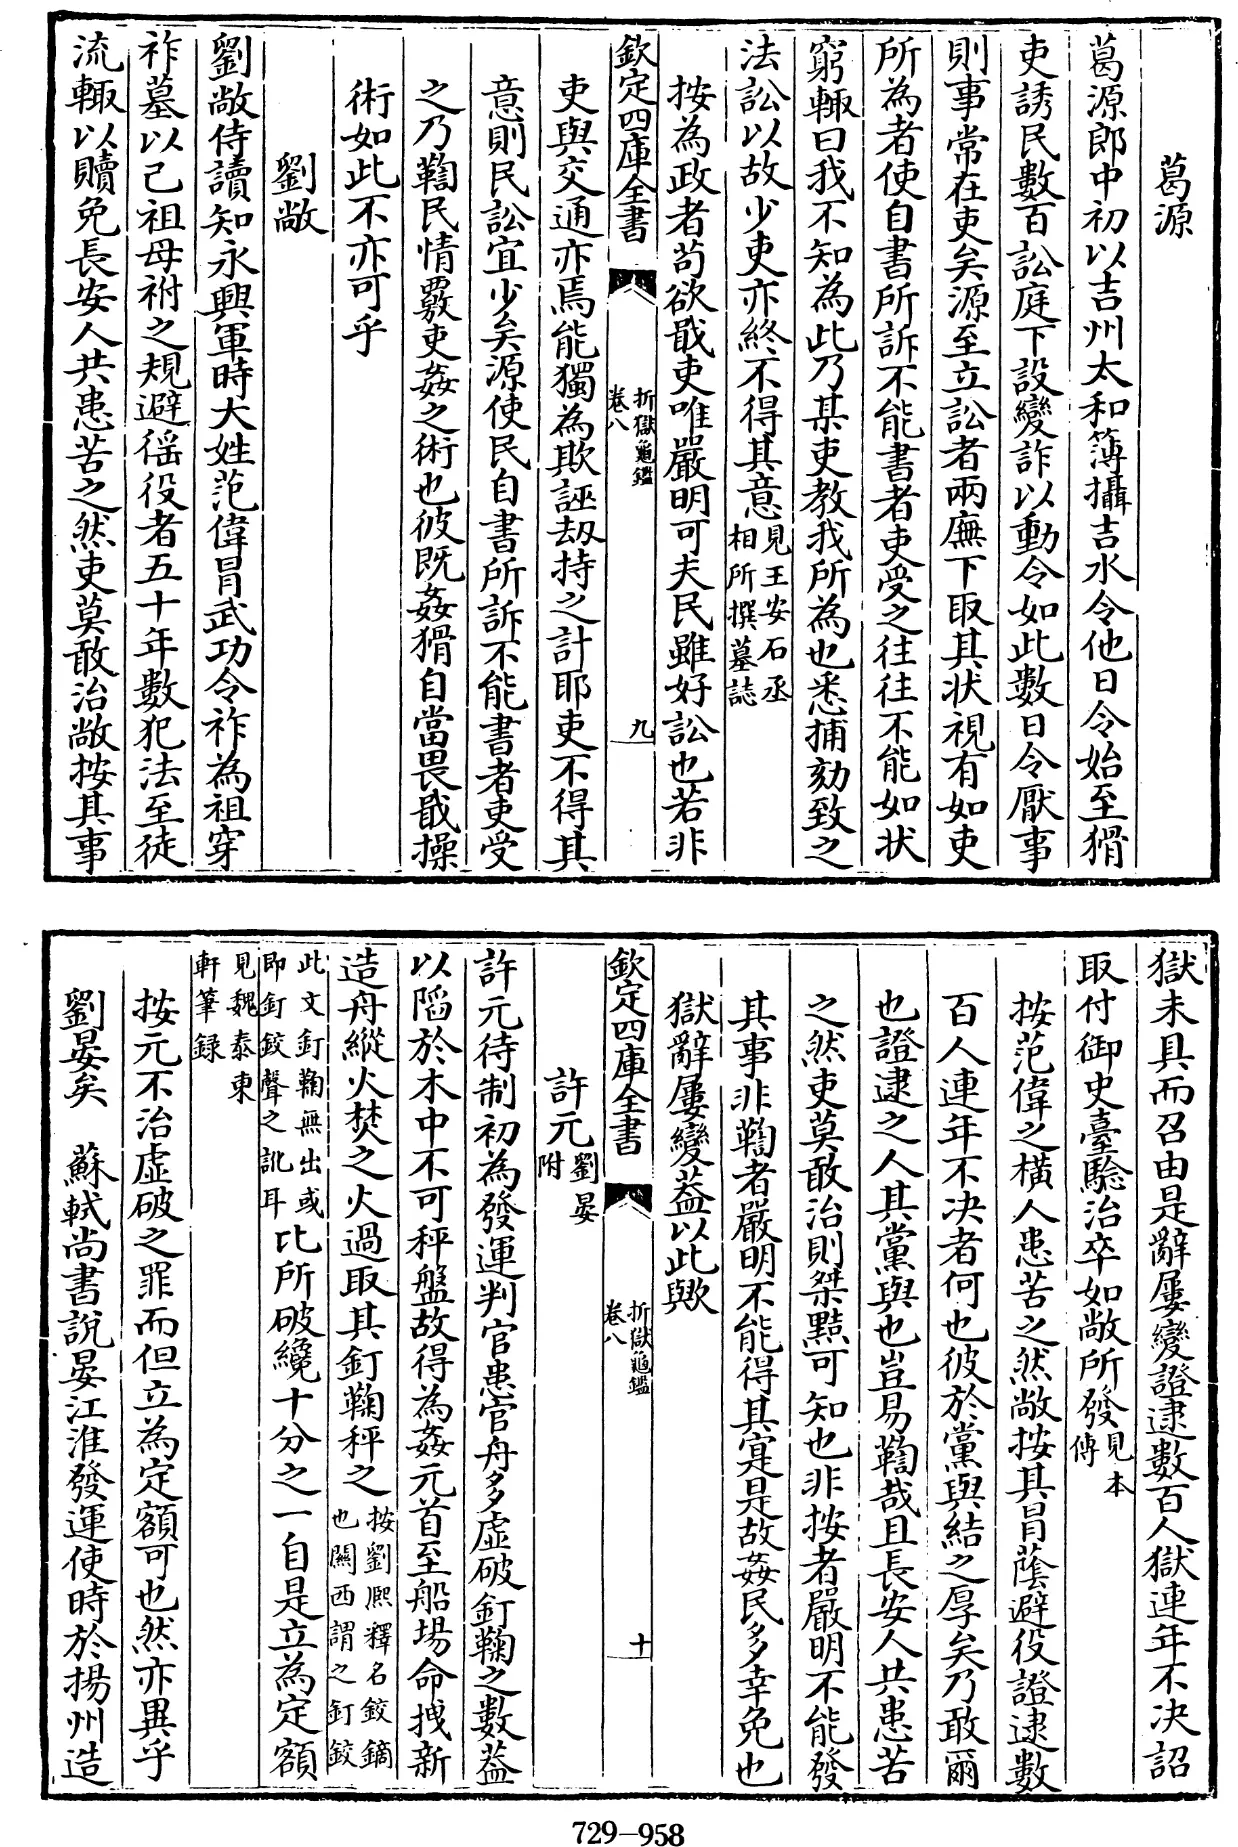 葛源
葛源郎中初以吉州太和簿攝吉水令他日令始至猾
吏誘民數百訟庭下設變詐以動令如此數日令厭事
則事常在吏矣源至立訟者兩廡下取其狀視有如吏
所為者使自書所訴不能書者吏受之往往不能如狀
窮輙曰我不知為此乃某吏教我所為也悉捕劾致之
法訟以故少吏亦終不得其意見王安石丞
相所撰墓誌
按為政者茍欲戢吏唯嚴明可夫民雖好訟也若非
欽定四庫全書
折獄龜鑑
卷八
九
吏與交通亦焉能獨為欺誣刼持之計耶吏不得其
意則民訟宜少矣源使民自書所訴不能書者吏受
之乃鞫民情覈吏姦之術也彼既姦猾自當畏戢操
術如此不亦可乎
劉敞
劉敞侍讀知永興軍時大姓范偉冐武功令祚為祖穿
祚墓以己祖母祔之規避徭役者五十年數犯法至徒
流輙以贖免長安人共患苦之然吏莫敢治敞按其事
獄未具而召由是辭屢變證逮數百人獄連年不决詔
取付御史臺驗治卒如敞所發見本
傳
按范偉之橫人患苦之然敞按其冐蔭避役證逮數
百人連年不决者何也彼於黨與結之厚矣乃敢爾
也證逮之人其黨與也豈易鞫哉且長安人共患苦
之然吏莫敢治則桀黠可知也非按者嚴明不能發
其事非鞫者嚴明不能得其寔是故姦民多幸免也
獄辭屢變葢以此歟
欽定四庫全書
折獄龜鑑
卷八
十
許元劉晏
附
許元待制初為發運判官患官舟多虛破釘鞠之數葢
以陷於木中不可秤盤故得為姦元首至船場命拽新
造舟縱火焚之火過取其釘鞠秤之按劉熈釋名鉸鏑
也關西謂之釘鉸
此文釘鞠無出或
即釘鉸聲之訛耳比所破纔十分之一自是立為定額
見魏泰東
軒筆録
按元不治虛破之罪而但立為定額可也然亦異乎
劉晏矣　蘇軾尚書說晏江淮發運使時於揚州造
729–958